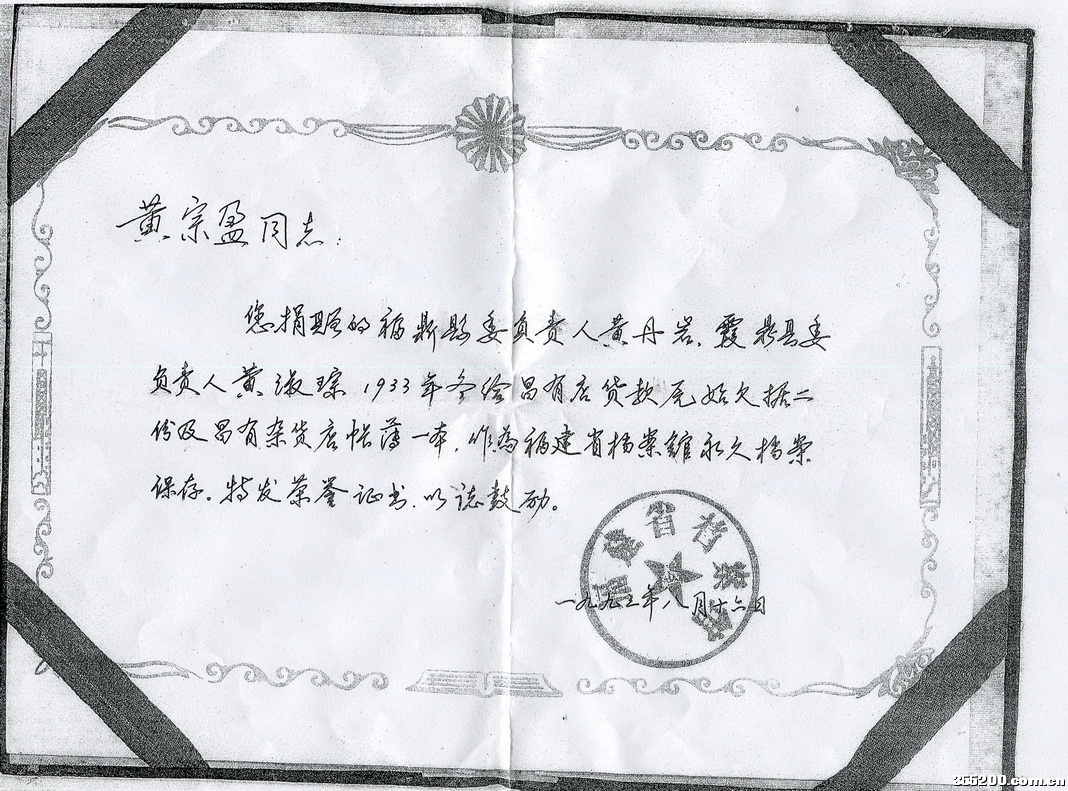 黄宗盈同志：
您捐赠的福鼎县委负责人黄丹岩、霞鼎县委
负责人黄淑琮1933年冬给昌有店货款尾始欠据二
份及昌有杂货店帐薄一本，作为福建省档案馆永久档案
保存。特发荣誉证书，以志鼓励。
福建省档案馆
一九九三年八月十六日
365200.com.cn